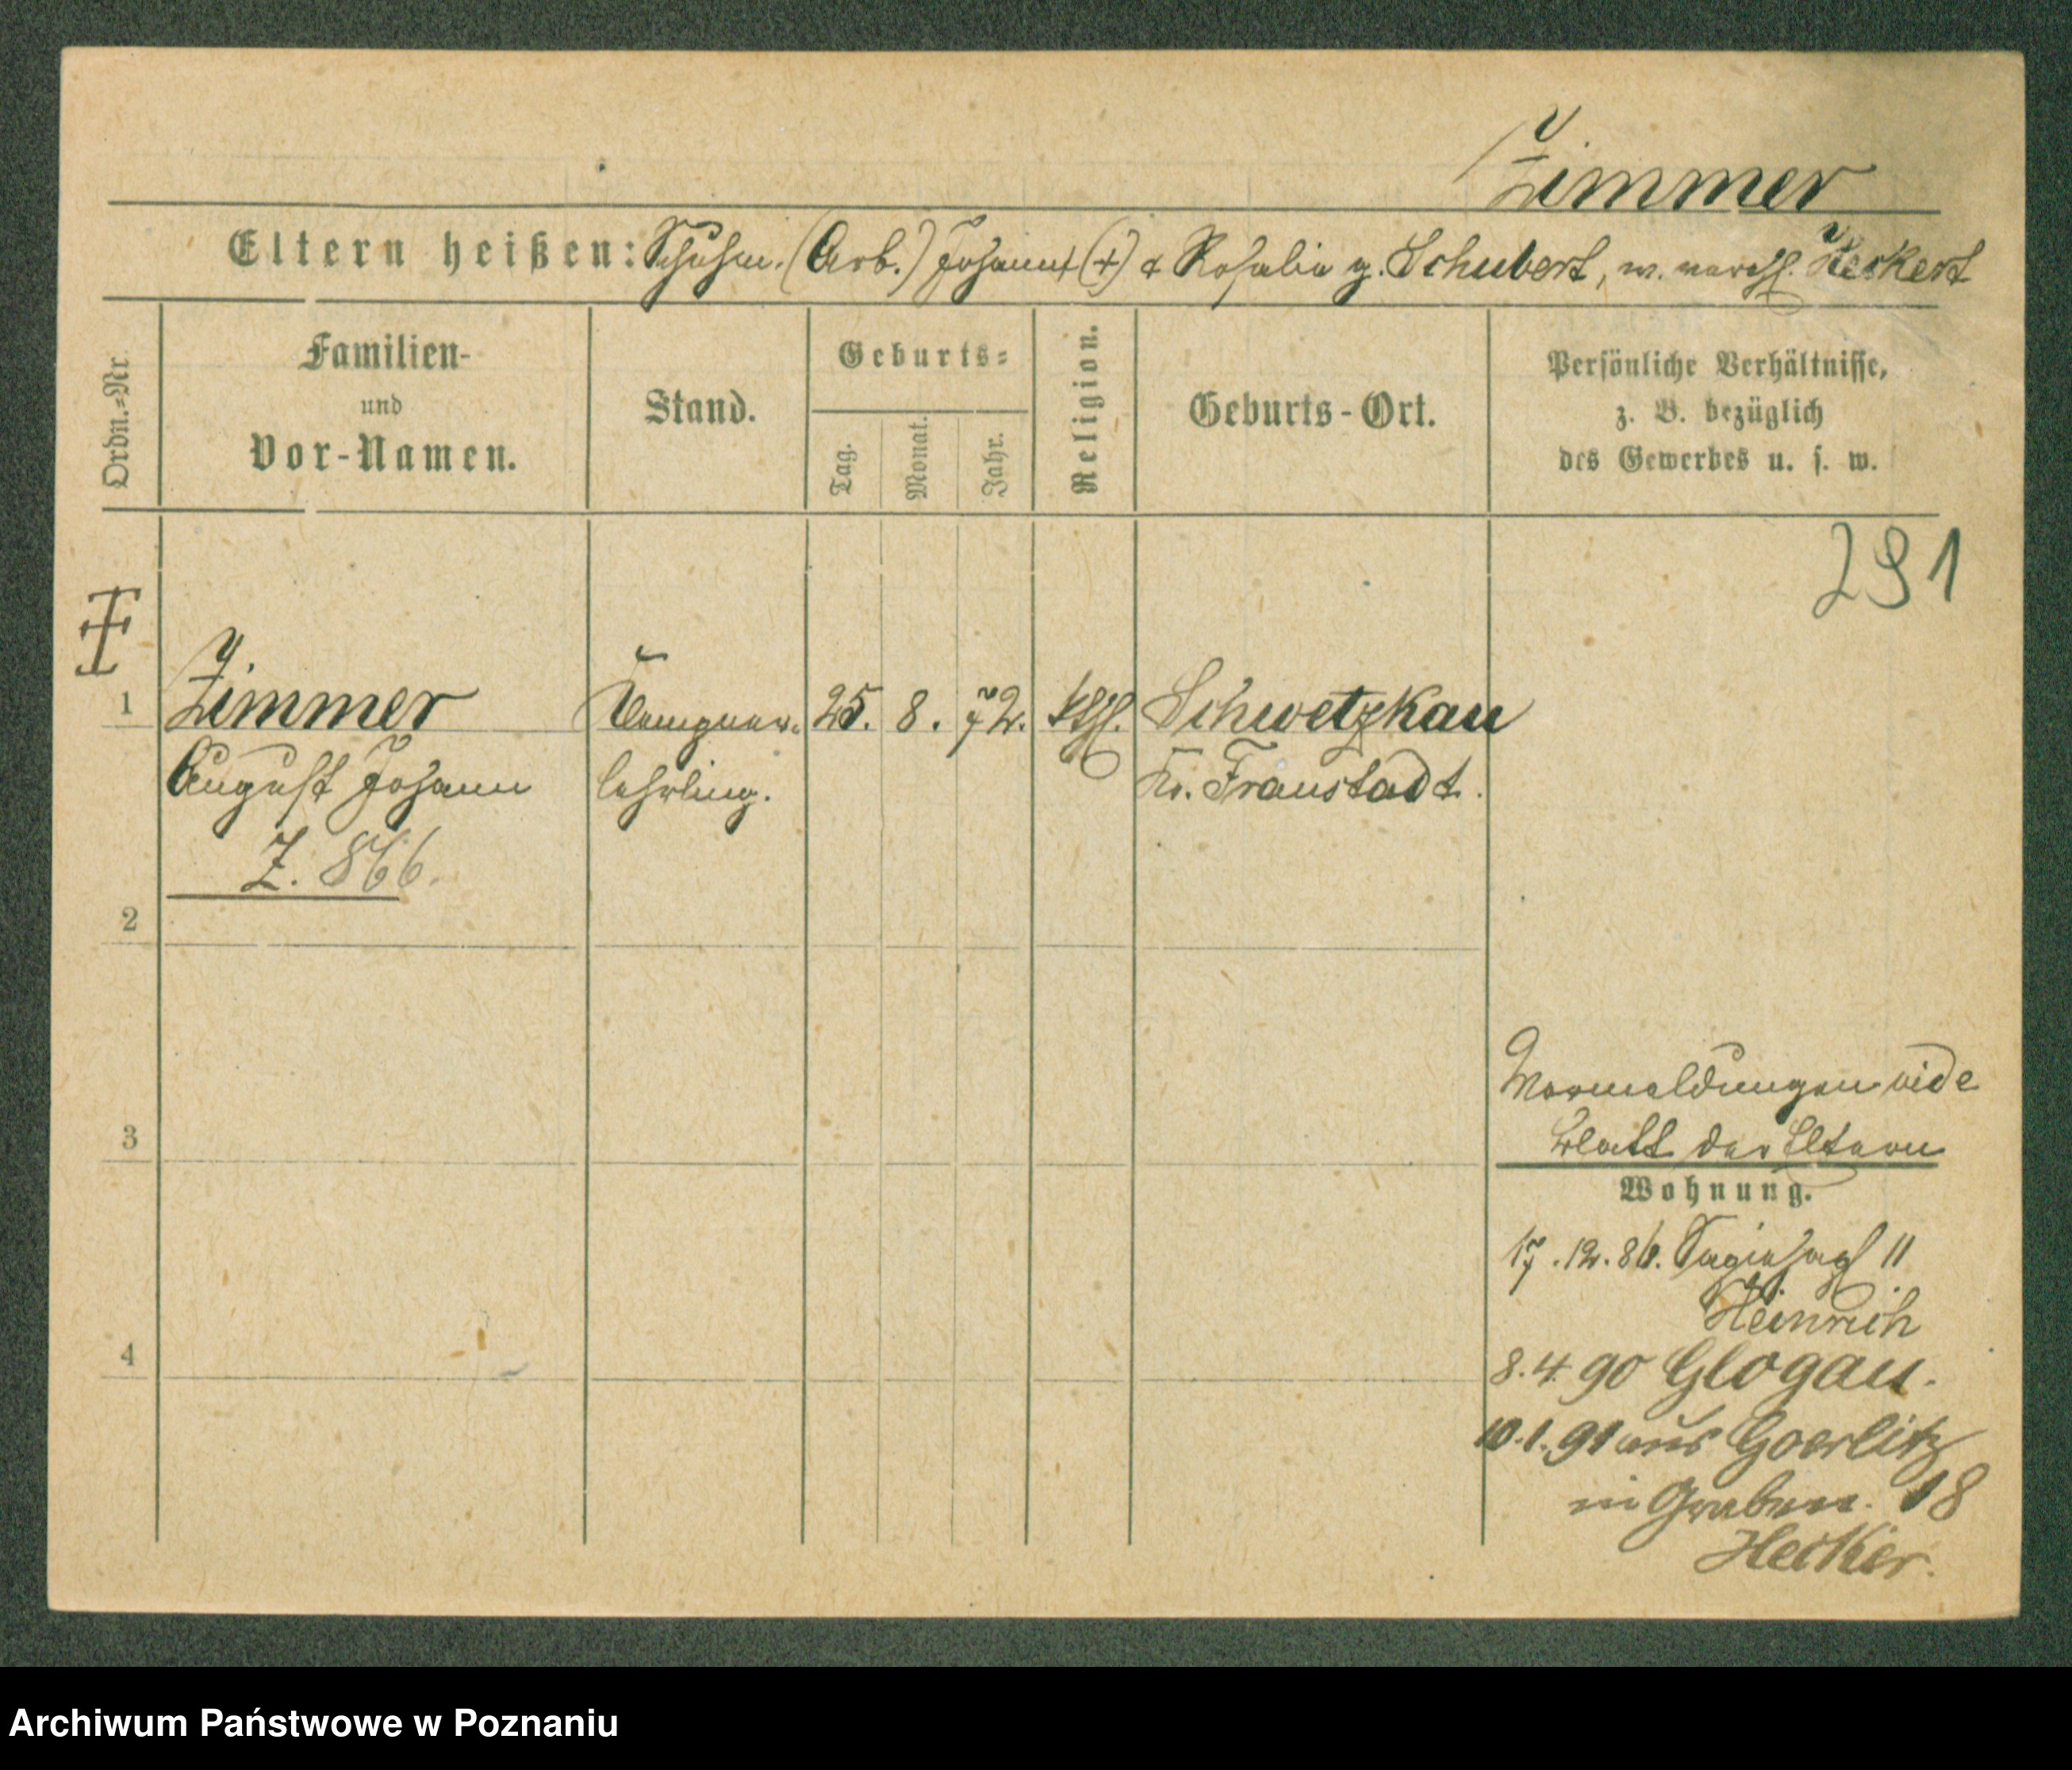 Zimmer
Eltern heißen: Schuhm. (Arb.) Johann (+) & Rosalia g. Schubert, w. verehl. Heckert
Ordn.=Nr.
Familien-
und
Vor-Namen.
Stand.
Geburts=
Tag.
Monat.
Jahr.
Religion.
Geburts-Ort.
Persönliche Verhältnisse,
z. B. bezüglich
des Gewerbes u. s. w.
291
1 Zimmer 25. 8. 72. kthl. Schwetzkau
August Johann lehrling. Kr. Fraustadt.
Z. 866.
2
Vormeldungen vide
3 Blatt der Eltern
Wohnung.
17.12.86. 11
Heinrich
4 8.4.90 Glogau.
10.1.91 aus Goerlitz
in Graben. 18
Hecker.
Archiwum Państwowe w Poznaniu